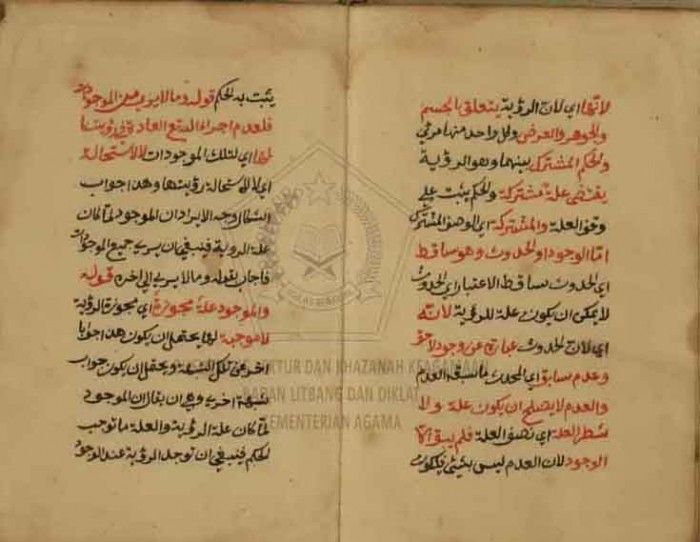 لانها اي لان الروية يتعلق بالجسم
والجوهر والعرض ولكل واحد منها مرئي
والحكم المشترك بينهما وهو الروية
يقتضى علة مشتركة والحكم يثبت على
وفق العلة والمشتركة اي الوصف المشترك
اما الوجود او الحدوث وهو ساقط
اي الحدوث ساقط الاعتبار اي الحدوث
لا يمكن ان يكون علة للروية لانه
اي لان الحدوث عبارة عن وجود لاحق
وعدم سابق اي المحدث ما سبقه العدم
والعدم لا يصلح ان يكون علة ولا
شطر العلة اي نصف العلة فلم يبق الا
الوجود لان العدم ليس بشيئ فيكون
يثبت به الحكم قوله وما لا يرى من الموجودات
فلعدم اجراء الله تع العادة في رويتنا
لها اي لتلك الموجودات لا لاستحالة
اي لا لاستحالة رويتها وهذا جواب
السؤال وجه الايراد ان الموجود لما كان
علة الروية فينبغي ان يرى جميع الموجودات
فاجاب بقوله وما لا يرى الى اخره قوله
والموجود علة مجوزة اي مجوزة الروية
لا موجبة لها يحتمل ان يكون هذا جوابا
اخر عن تلك الشبهة ويحتمل ان يكون جواب
شبهة اخرى وهي ان يقال ان الموجود
لما كان علة الروية والعلة ما توجب
الحكم فينبغي ان توجد الروية عند الوجود
LEKTUR DAN KHAZANAH KEAGAMAAN
BADAN LITBANG DAN DIKLAT
KEMENTERIAN AGAMA